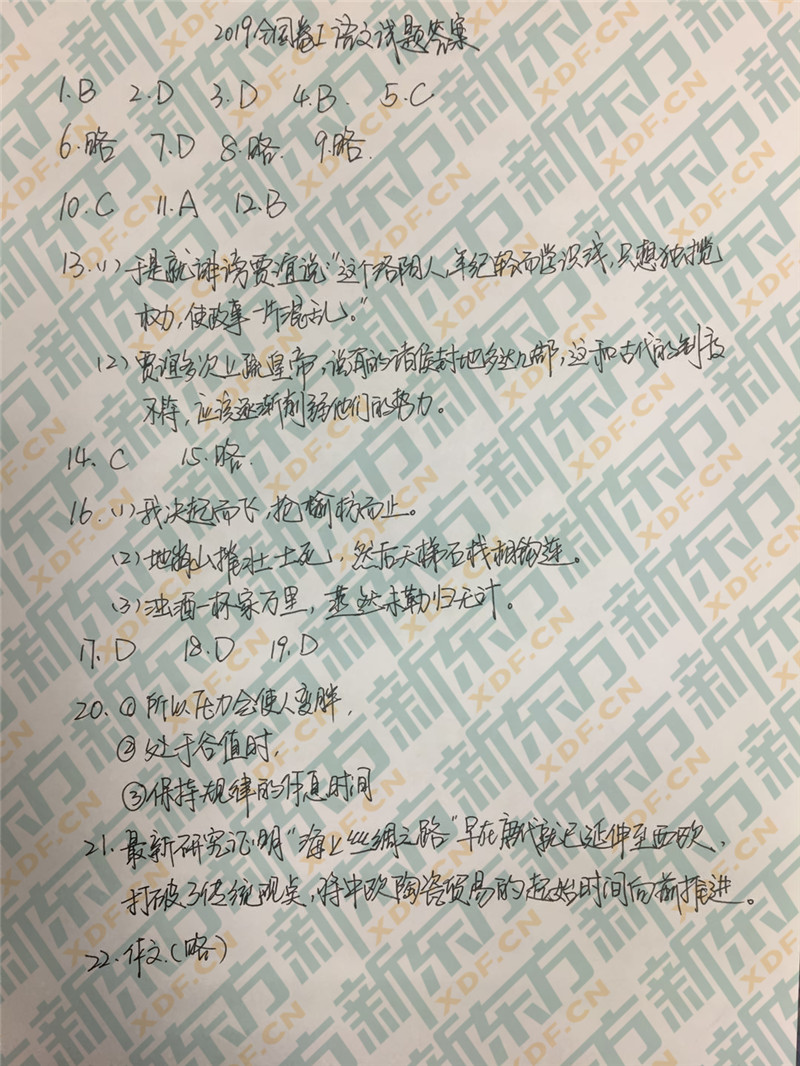 2019全国卷I语文试题答案
1.B 2.D 3.D 4.B. 5.C
6.略 7.D 8.略. 9.略.
10.C 11.A 12.B
13.(1)于是就诽谤贾谊说"这个洛阳人,年纪轻而学识浅,只想独揽
权力,使政事一片混乱。"
(2)贾谊多次上疏皇帝,说有的诸侯封地多达几郡,这和古代的制度
不符,应该逐渐削弱他们的势力。
14、C 15.略.
16.(1)我决起而飞,抢榆枋而止。
(2)地崩山摧壮士死,然后天梯石栈相钩连。
(3)浊酒一杯家万里,燕然未勒归无计。
17.D 18.D 19.D
20.①所以压力会使人变胖,
②处于谷值时,
③保持规律的作息时间
21.最新研究证明"海上丝绸之路"早在唐代就已延伸至西欧,
打破了传统观点,将中欧陶瓷贸易的起始时间向前推进。
22.作文.(略)
新东方
XDF.CN